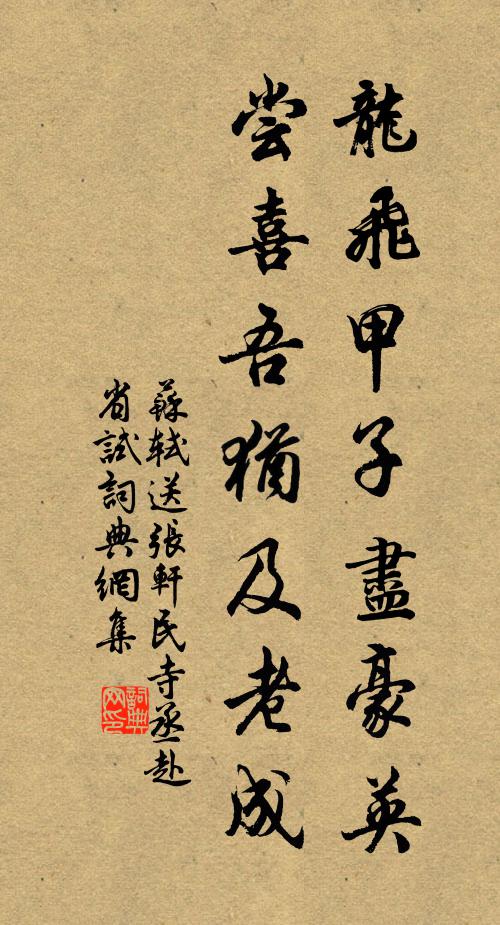 龍飛甲子盡豪英
嘗喜吾猶及老成
蘇軾送張軒民寺丞赴
省試詞典網集
詞典
网印